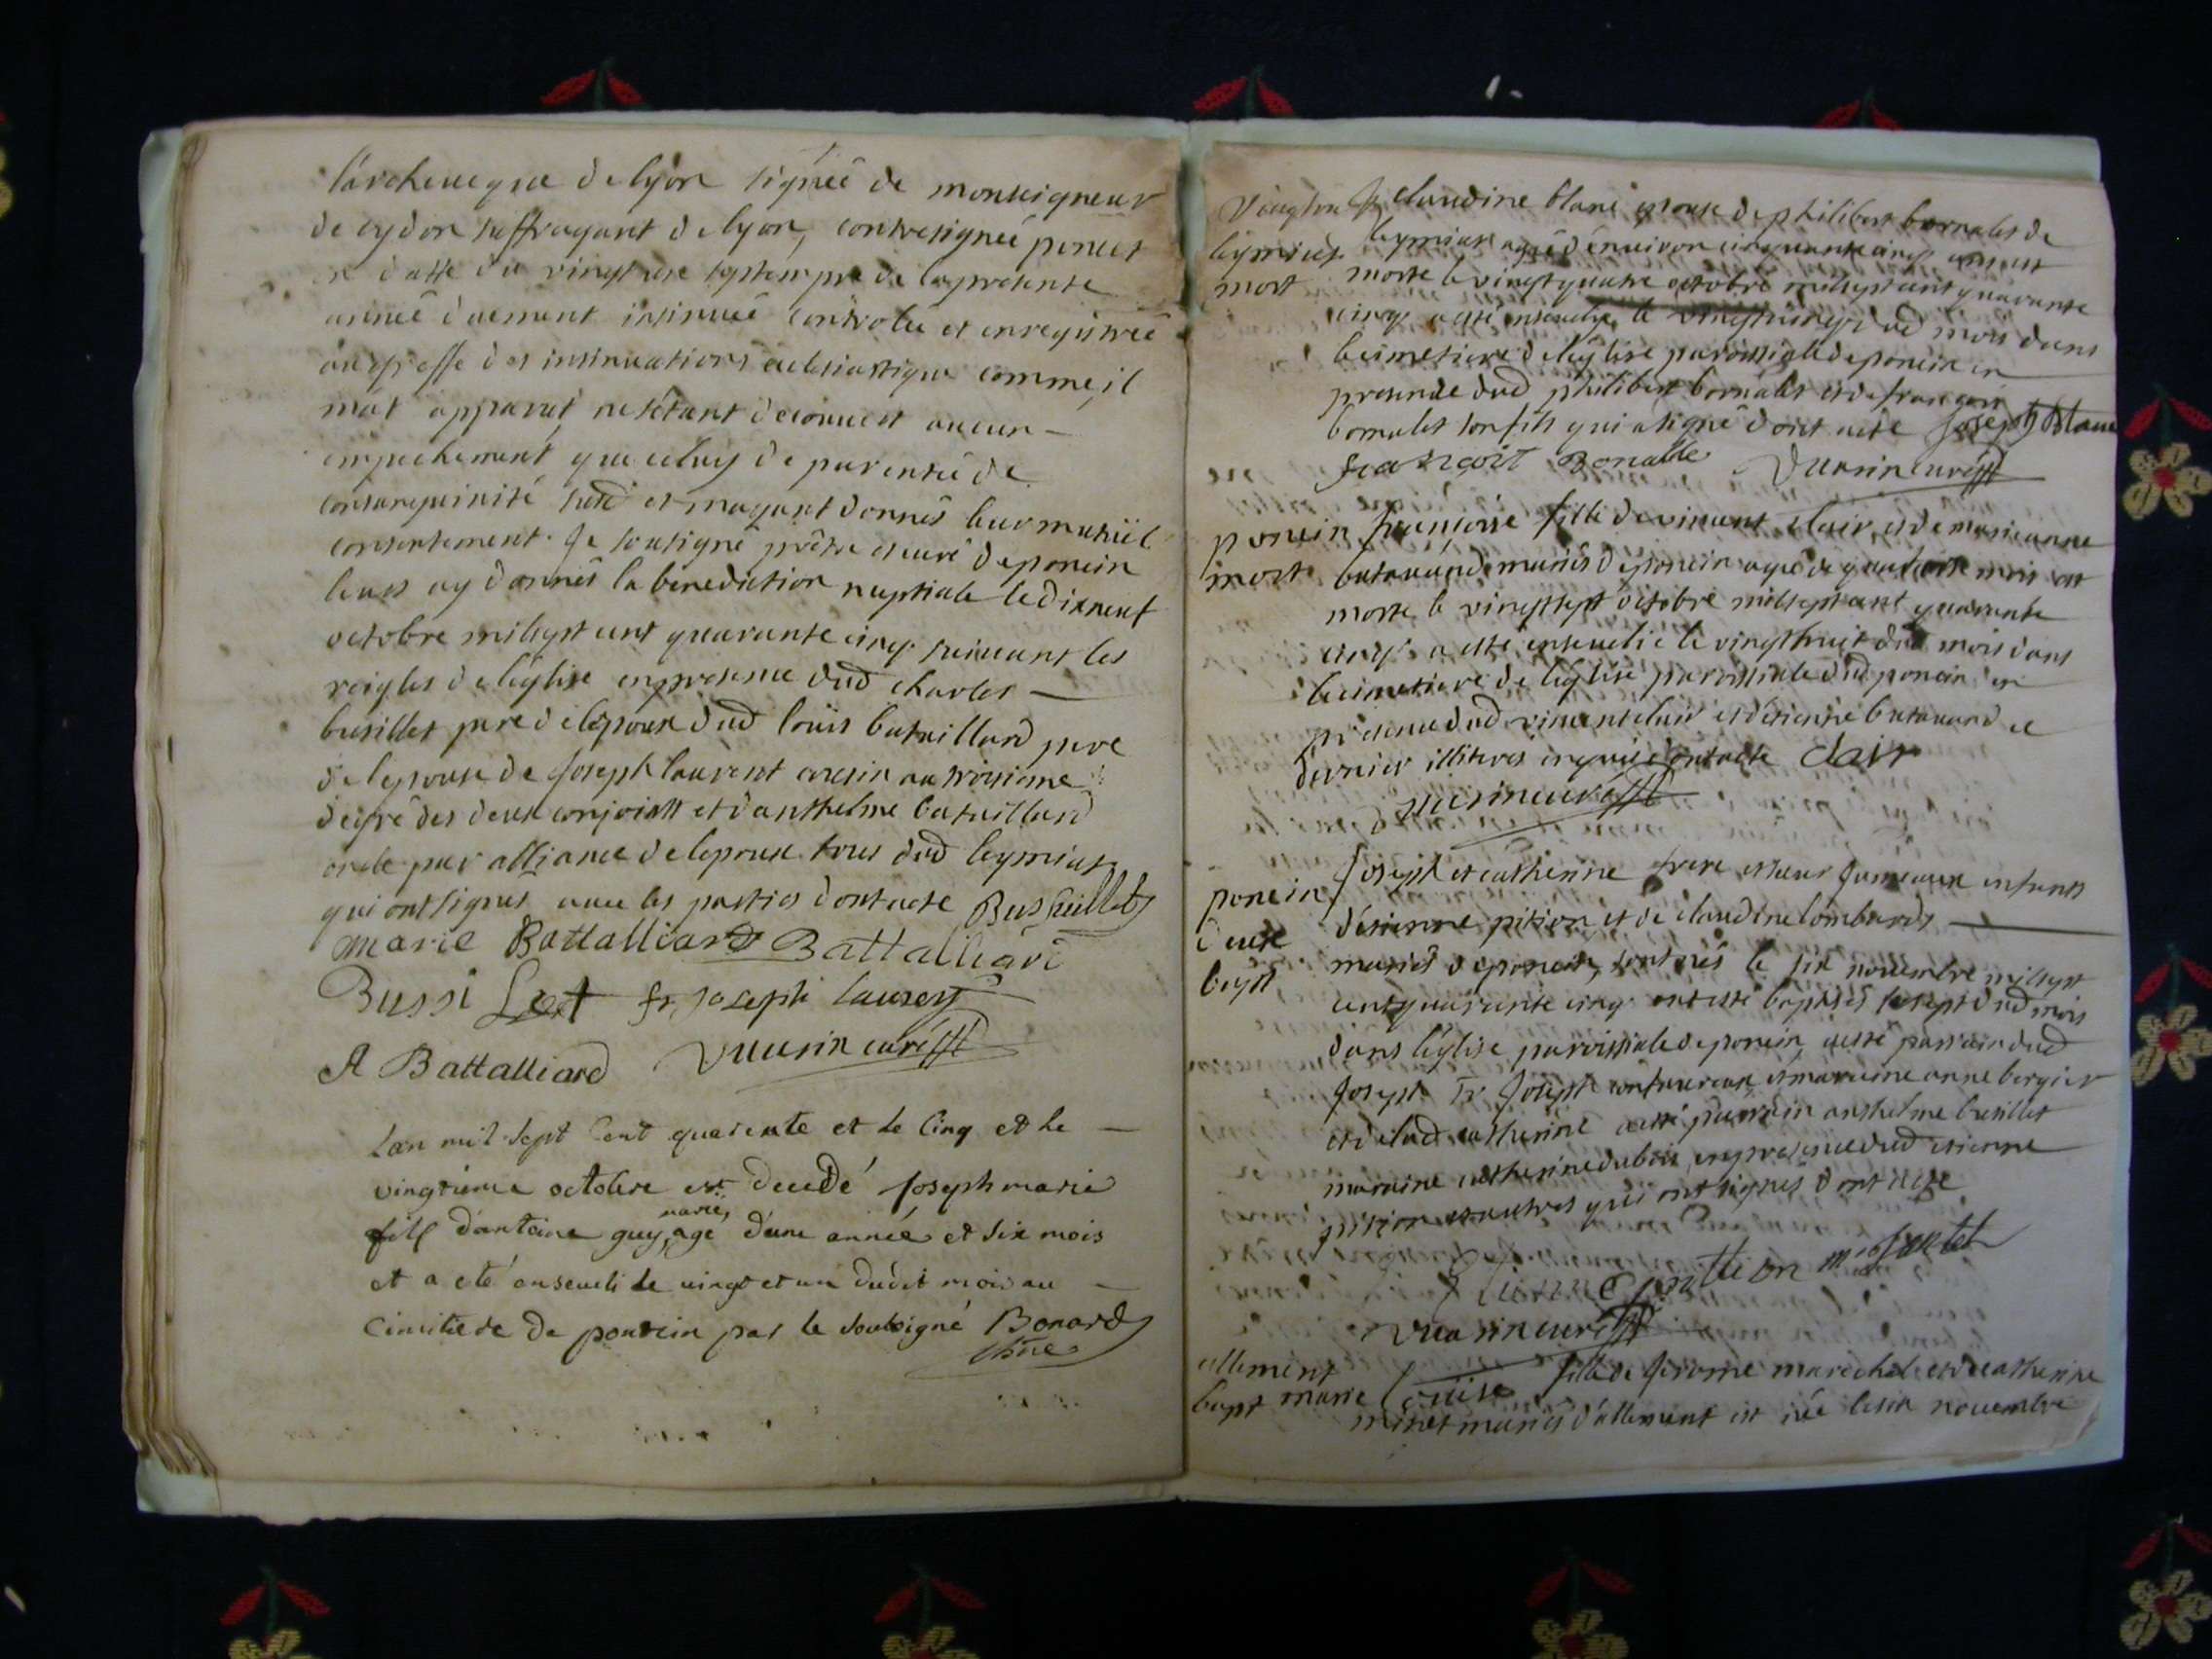 l'archeueque de lyon signée de monseigneur
de cydon suffragant de lyon, contresignée poncet
en datte du vingt septempre de la presente
année duement insinuée controlée et enregistrée
au greffe des insinuations eclesiastique comme, il
m'at apparut, ne s'etant decouuert aucun —
empechement que celuy de parenté de
consanguinité susd et m'ayant donnés leur mutüel
consentement. Je sousigné prêtre et curé de poncin
leurs ay donnés la benediction nuptiale le dixneuf
octobre milsept cent quarante cinq suiuant les
reigles de l'église en presence dud charles —
busillet pere de lepoux dud loüis bataillard pere
de lepouse de Joseph laurent cousin au troisieme
degré des deux conjoints et d'anthelme bataillard
oncle par alliance de lepoux tous dud leymiat
qui ont signés auec les parties dont acte Bussillet
marie Battalliard Battalliard
Bussi Let fr, joseph Laurent
A Battalliard Vuarin curé
Lan mil sept Cent quarente et le Cinq et le —
vingtieme octobre est decedé Joseph marie
fils d'antoine guy, agé d'une année et six mois
et a eté enseueli le vingt et un dudit mois au —
Cimitiere de poncin par le soubsigné Bonard
vicire
Claudine blanc epouse de philibert bornalet de
leymiat leymiat agée d'enuiron cinquante cinq ans est
mort morte le vingt quatre octobre milsept cent quarante
cinq a esté enseuelye le vingtcinq dud mois dans
le cimetiere de l'église paroissiale de poncin en
presence dud philibert bornalet et de françois
bornalet son fils qui a signé dont acte Joseph Blanc
francoit Bonalle Vuarin curé
poncin françoise fille de vincent clair et de marieanne
morte batauand mariés de poncin agée de quatorze mois est
morte le vingtsept octobre milsept cent quarante
cinq a esté enseuelie le vingthuit dud mois dans
le cimetiere de l'église paroissiale dud poncin en
presence dud vincent clair et d'etienne batauand ce
dernier illiteré enquis dont acte Clair
Vuarin curé
poncin Joseph et catherine frere et soeur Jumeaux enfants
deux d'etienne pition et de claudine lombard —
bapt mariés de poncin, sont nés le six nouembre milsept
cent quarante cinq ont esté baptisés le sept dud mois
dans l'église paroissiale de poncin, a esté parrain dud
Joseph Sr Joseph et maraine anne bergier
et de lad catherine a esté parrain anthelme busillet
maraine catherine dubois en presence dud etienne
pition et autres qui ont signés dont acte
Etienne pition
Vuarin curé
allement marie Loüise fille de Jerome marechal et de catherine
bapt minet mariés d'allement est née le six nouembre